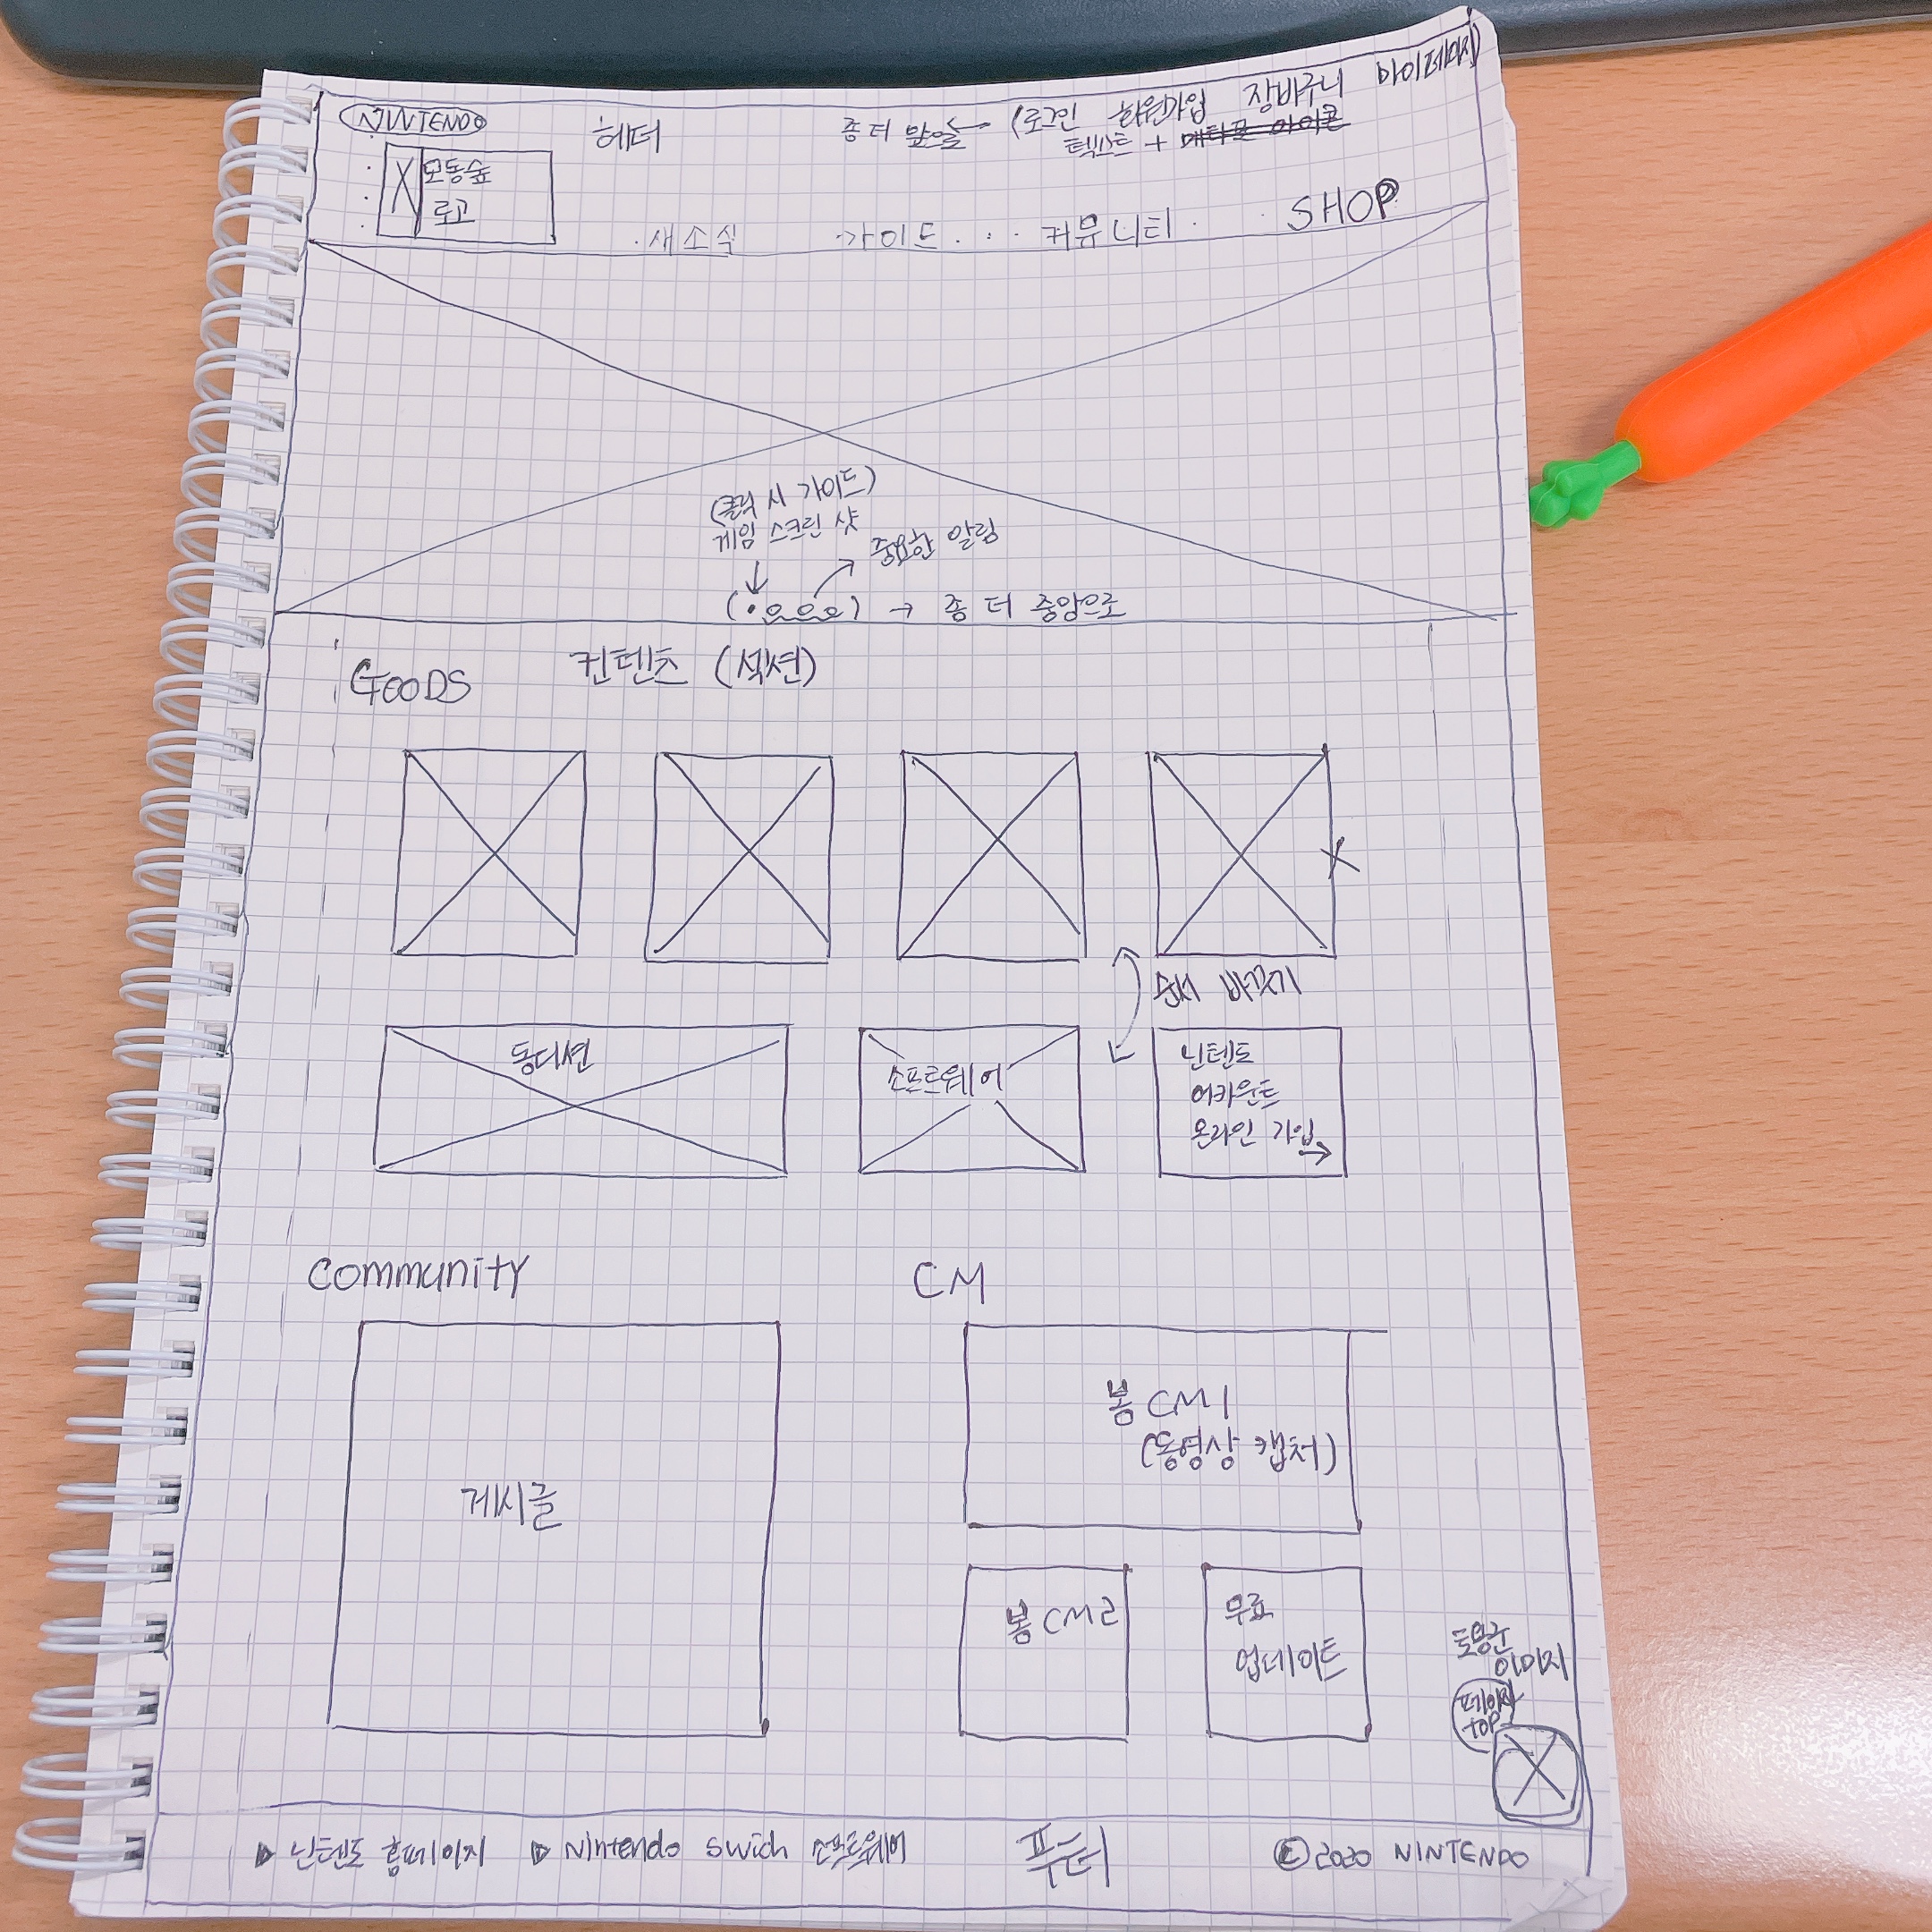 NINTENDO
헤더
좀 더 앞으로
(로그인 회원가입 장바구니 마이페이지)
텍스트 +
X 모동숲
로고
· 새소식 · 가이드 · 커뮤니티 · SHOP
(클릭 시 가이드)
게임 스크린 샷
중요한 알림
→ 좀 더 중앙으로
GOODS
컨텐츠 (섹션)
순서 바꾸기
동디션
소프트웨어
닌텐도
어카운트
온라인 가입
→
COMMUNITY
CM
게시글
봄 CM1
(동영상 캡처)
봄 CM2
무료
업데이트
이미지
페이지
TOP
▶ 닌텐도 홈페이지 ▶ Nintendo Swich 소프트웨어
푸터
©2020 NINTENDO